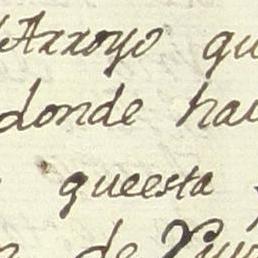 Arroyo qu
donde hau
queesta
de